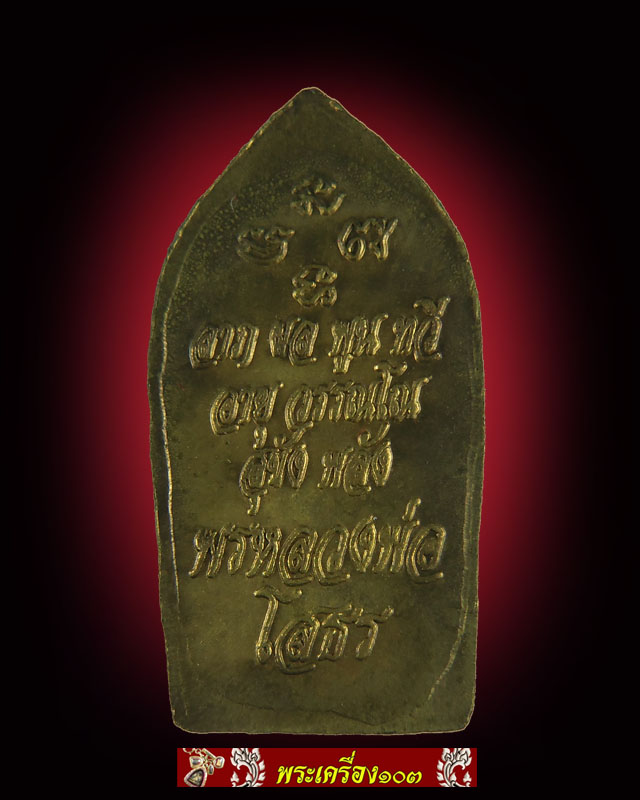 ลาภ ผล พูน ทวี
อายุ วรรณโณ
สุขัง พลัง
พรหลวงพ่อ
โสธร
พระเครื่อง๑๐๓